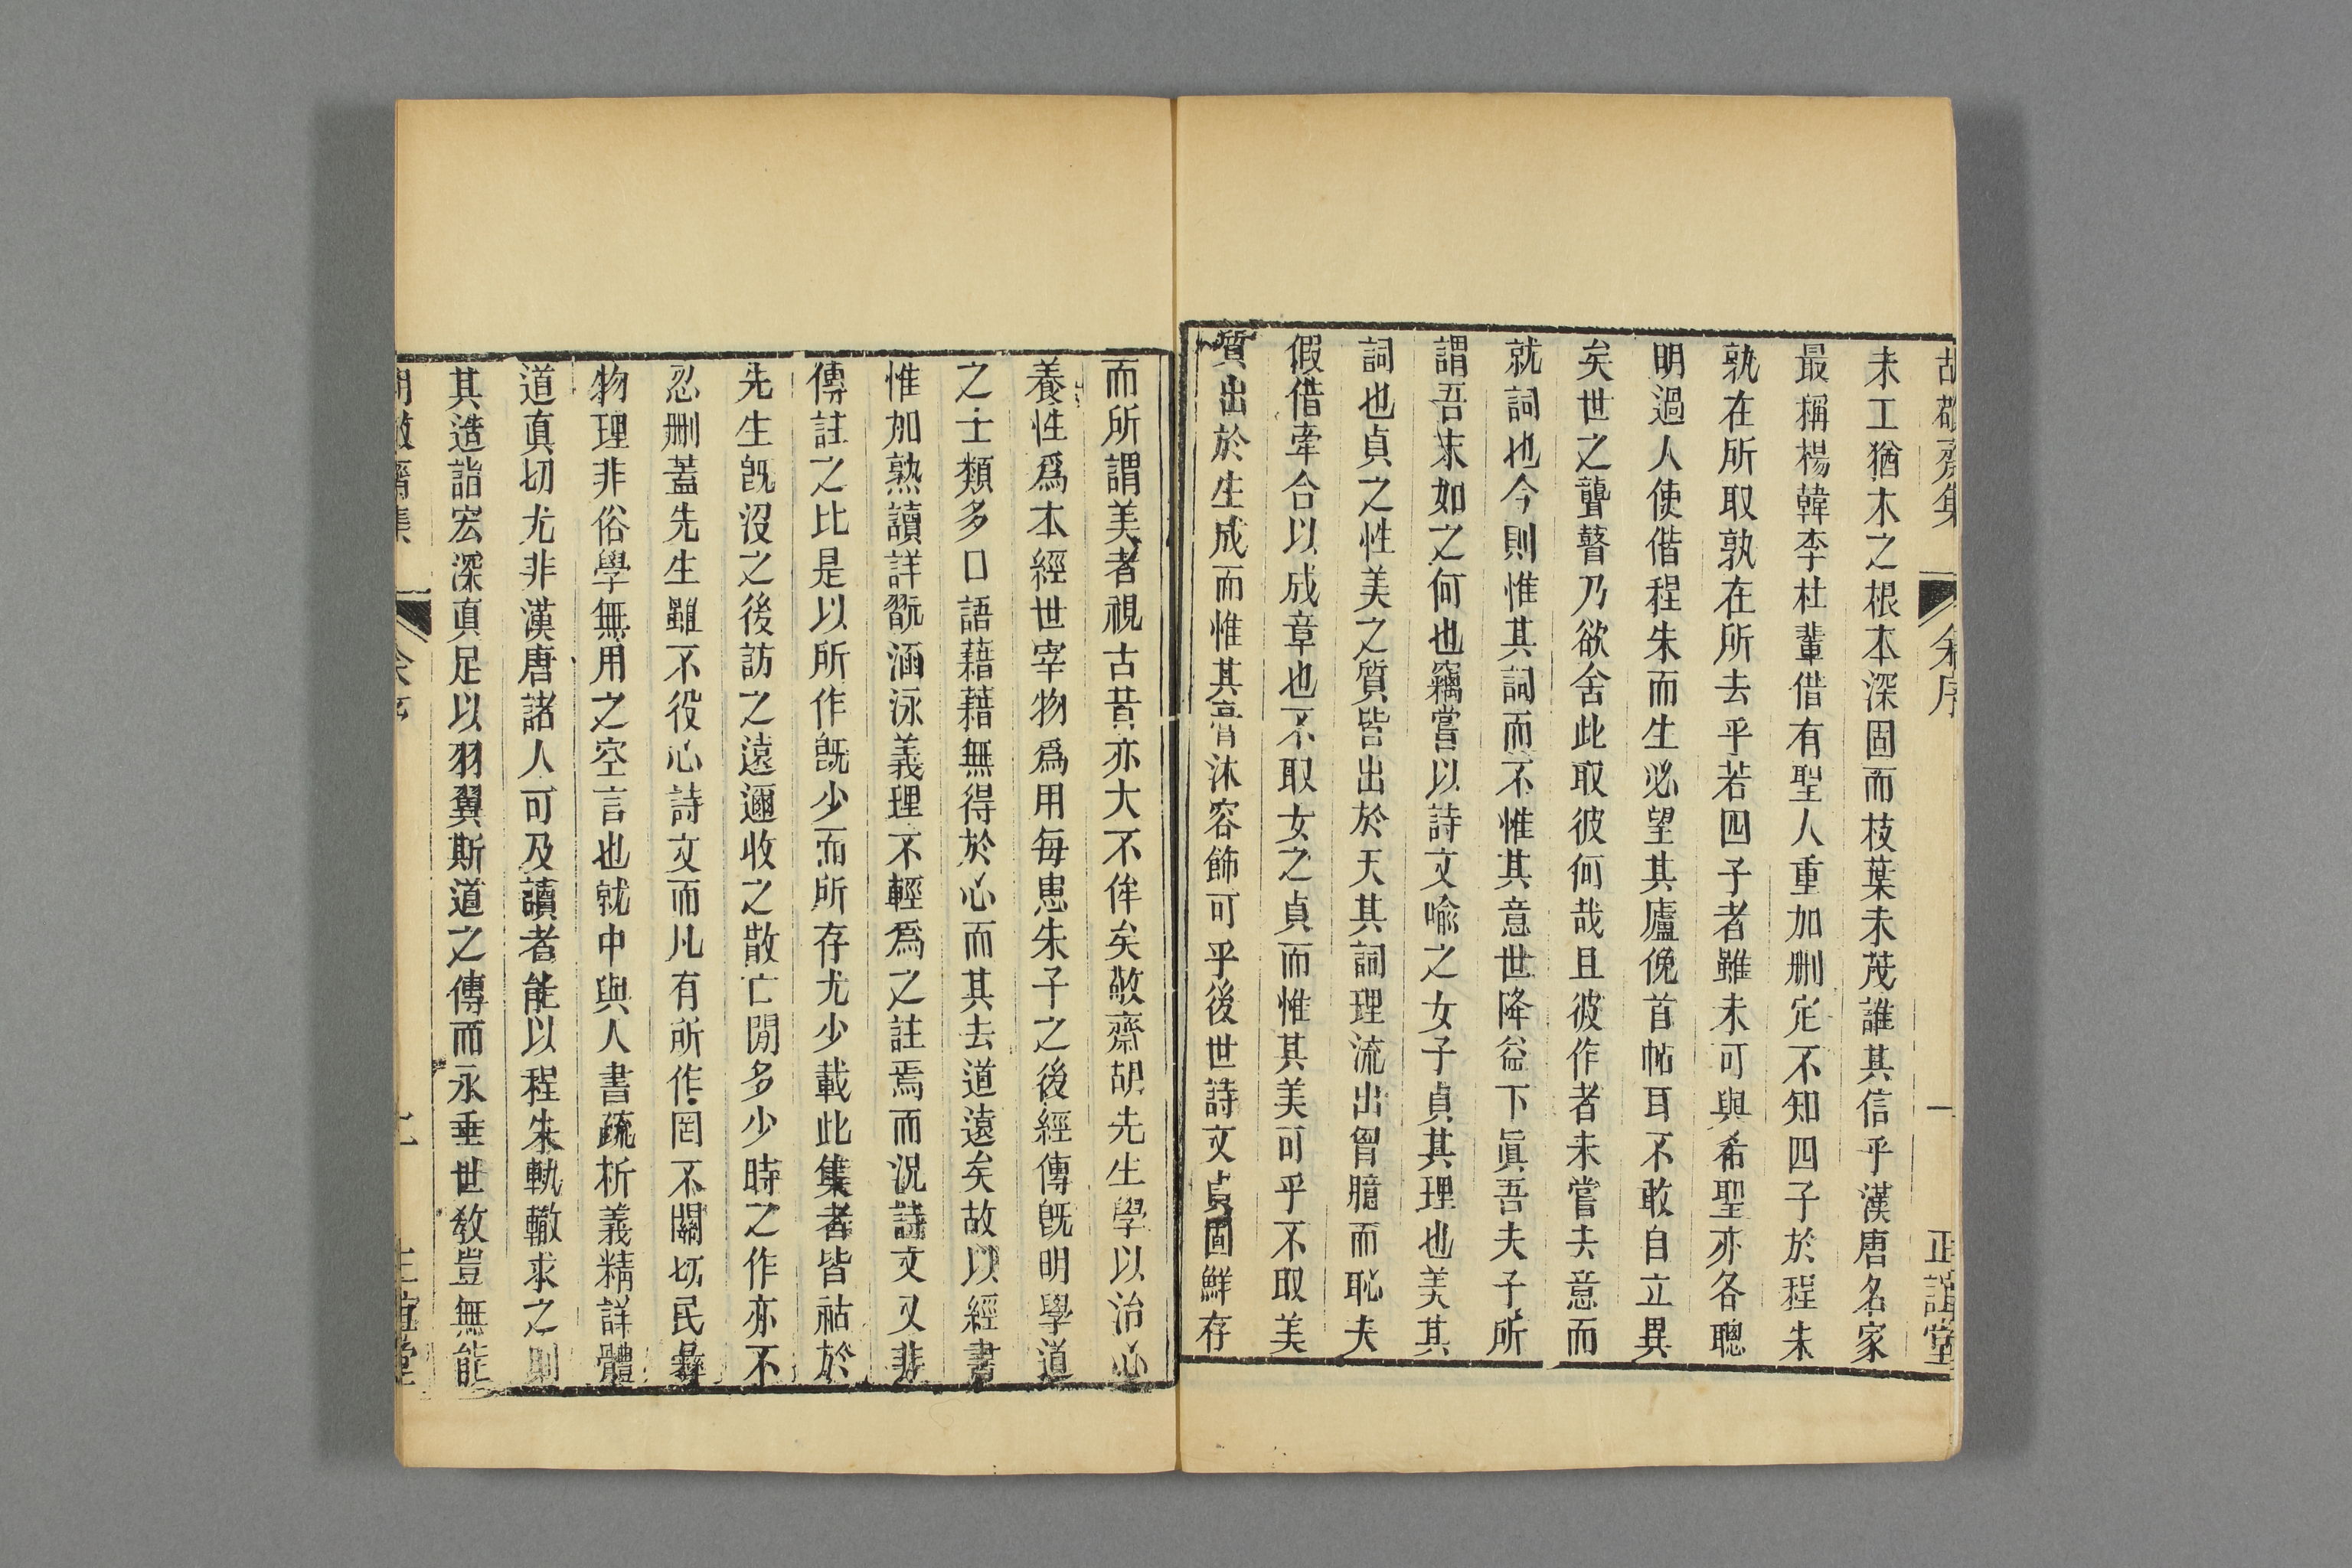 胡敬齋集 余序 一 正誼堂
未工猶木之根本深固而枝葉未茂誰其信乎漢唐名家
最稱楊韓李杜輩借有聖人重加刪定不知四子於程朱
孰在所取孰在所去乎若四子者雖未可與希聖亦各聰
明過人使偕程朱而生必望其廬俛首帖耳不敢自立異
矣世之聾瞽乃欲舍此取彼何哉且彼作者未嘗夫意而
就詞也今則惟其詞而不惟其意世降益下眞吾夫子所
謂吾末如之何也竊嘗以詩文喻之女子貞其理也美其
詞也貞之性美之質皆出於天其詞理流出胷臆而恥夫
假借牽合以成章也不取女之貞而惟其美可乎不取美
質出於生成而惟其膏沐容飾可乎後世詩文貞固鮮存
而所謂美者視古昔亦大不侔矣敬齋胡先生學以治心
養性爲本經世宰物爲用每患朱子之後經傳旣明學道
之士類多口語藉藉無得於心而其去道遠矣故以經書
惟加熟讀詳翫涵泳義理不輕爲之註焉而況詩文又非
傳註之比是以所作旣少而所存尤少載此集者皆祜於
先生旣沒之後訪之遠邇收之散亡閒多少時之作亦不
忍刪蓋先生雖不役心詩文而凡有所作罔不關切民彝
物理非俗學無用之空言也就中與人書疏析義精詳體
道眞切尤非漢唐諸人可及讀者能以程朱軌轍求之則
其造詣宏深眞足以羽翼斯道之傳而永垂世敎豈無能
胡敬齋集 余序 正誼堂